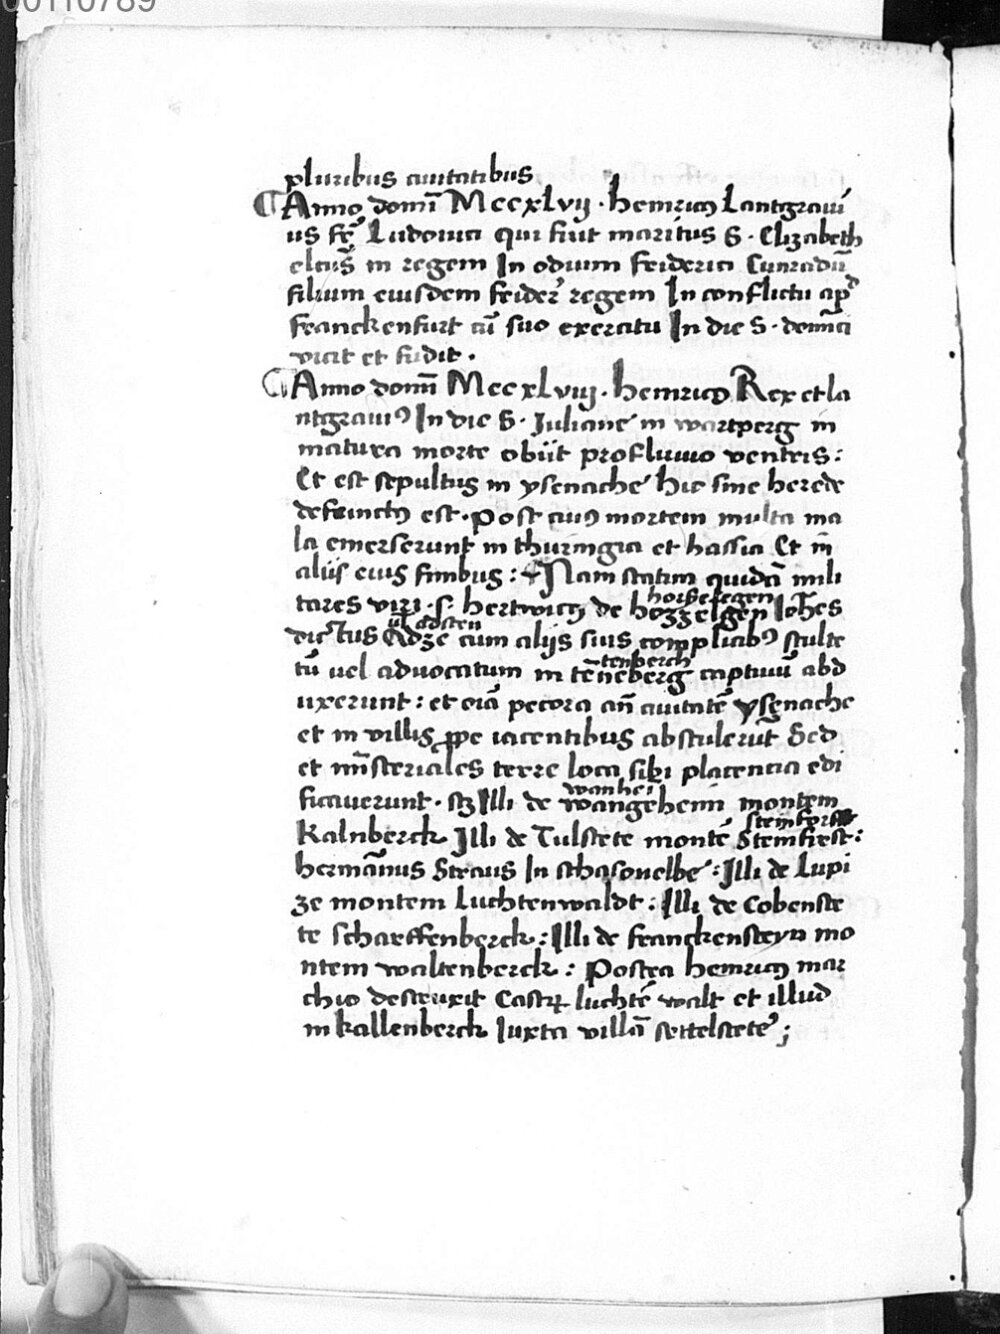 00110789
pluribus ciuitatibus
Anno domī Mccxlvij · heinricꝯ Lantgraui
us fr̄ Ludouici qui fuit maritus S · Elizabeth
elctꝰ in regem In odium frideric Cunradū
filium eiusdem frider̄ regem In conflictu apd
franckenfurt cū suo exercitu In die S · dom̄ci
vicit et fudit .
Anno domī Mccxlviij · heinricꝯ Rex et la
ntgrauiꝯ In die S · Juliane in wartperg in
matura morte obiit profluuio ventris :
Et est sepultus in ysenache hic sine herede
defunctꝯ est . post cuiꝯ mortem multa ma
la emerserunt in thuringia et hassia Et in
aliis eius finibus : Nam statim quidā mili
tares viri · s · hertwicꝯ de hozzelgen Joh̄es
horsselegen
dictus Adze cum alijs suis complicibꝯ stulte
vl adsten
tū uel aduocatum in tēneberg captiuū abd
tenberch
uxerunt : et oīa pecora an̄ ciuitatē ysenache
et in villis ꝓpe iacentibus abstulerūt Sed
et mīsteriales terre loca sibi placencia edi
ficauerunt · sꝫ Illi de wangeheim montem
wanhei
Kalnberck Illi de Tulstete montē Steinfirst :
steinforst
hermānus Straus In schasouelbe : Illi de Lupi
ze montem Luchtenwaldt : Illi de Cobenste
te scharffenberck : Illi de franckensteyn mo
ntem waltenberck : postea heinricꝯ mar
chio destruxit Castꝝ luchtē walt et illud
in kallenberck Iuxta villā settelstete ;